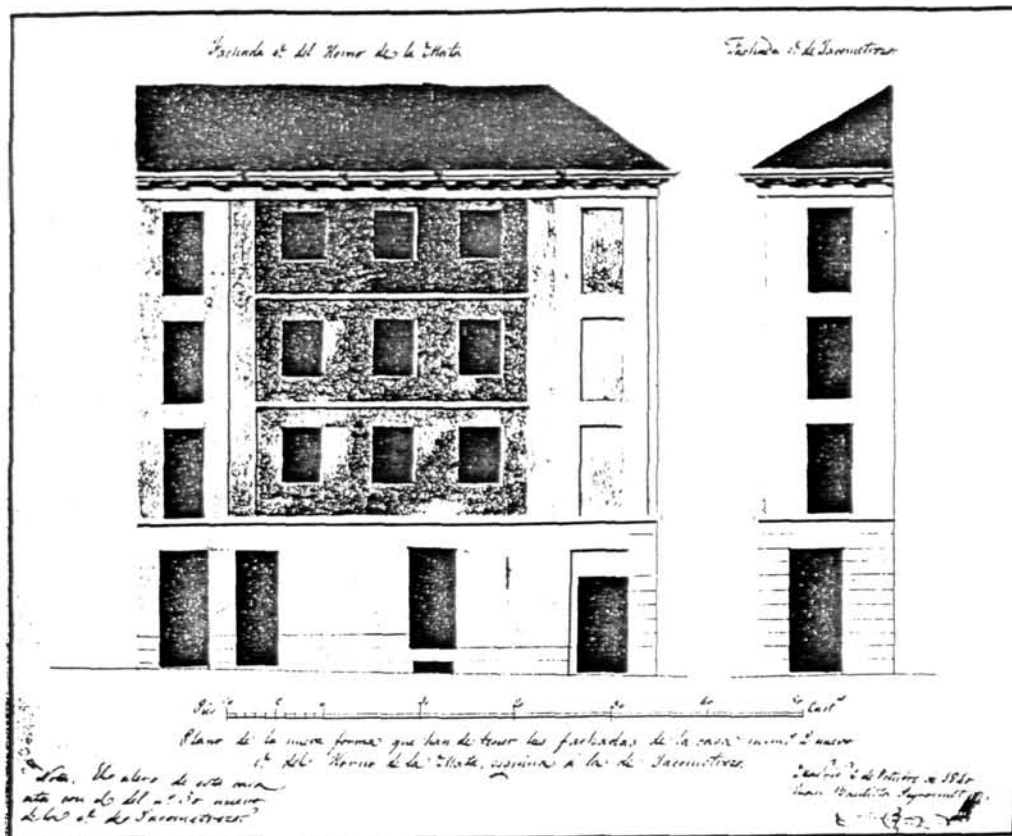 Fachada c.e del Horno de la Mata
Fachada c.e de Jacometrezo
Pies
Cast.s
Plano de la nueva forma que han de tener las fachadas de la casa num.o 2 nuevo
c.e del Horno de la Mata, esquina á la de Jacometrezo
Nota. El alero de esta
con el del n.o 30 nuevo
de la c.e de Jacometrezo
Madrid 2 de Octubre de 1840
Juan Bautista Peyronnet